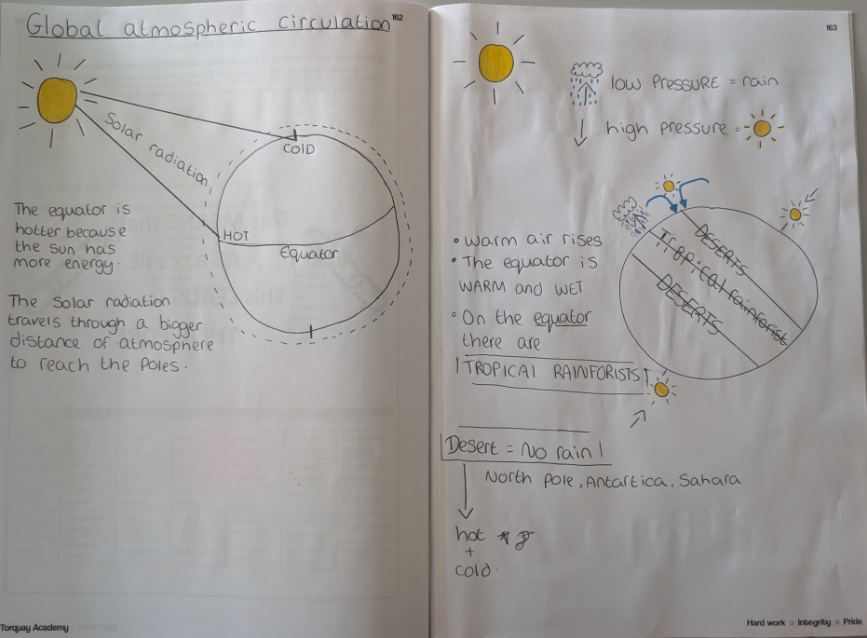 Global atmospheric circulation
162
Solar radiation
COLD
HOT
Equator
The equator is
hotter because
the sun has
more energy.
The solar radiation
travels through a bigger
distance of atmosphere
to reach the Poles.
Torquay Academy
163
low PRESSURE = rain
high pressure =
• Warm air rises
• The equator is
WARM and WET
• On the equator
there are
TROPICAL RAINFORISTS
DESERTS
Tropical rainforist
DESERTS
Desert = No rain!
North Pole, Antartica, Sahara
hot
+
cold.
Hard work □ Integrity □ Pride